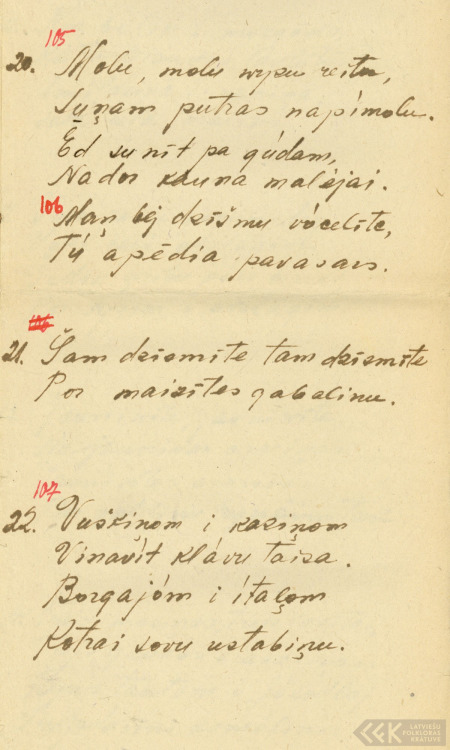 105
20. Molu, molu wypu reitu,
Suņam putras napimolu.
Ēd sunīt pa gūdam,
Nador kauna malējai.
106
Maņ bij dzišmu vōcelite,
Tū apēdia pavasars.
106
21. Šam dzismite tam dzismite
Por maizites gabalinu.
107
22. Vuškiņom i kaziņom
Vinavit klāvu taisa.
Borgajōm i itaļom
Kotrai sovu ustabiņu.
LATVIEŠU
FOLKLORAS
KRĀTUVE